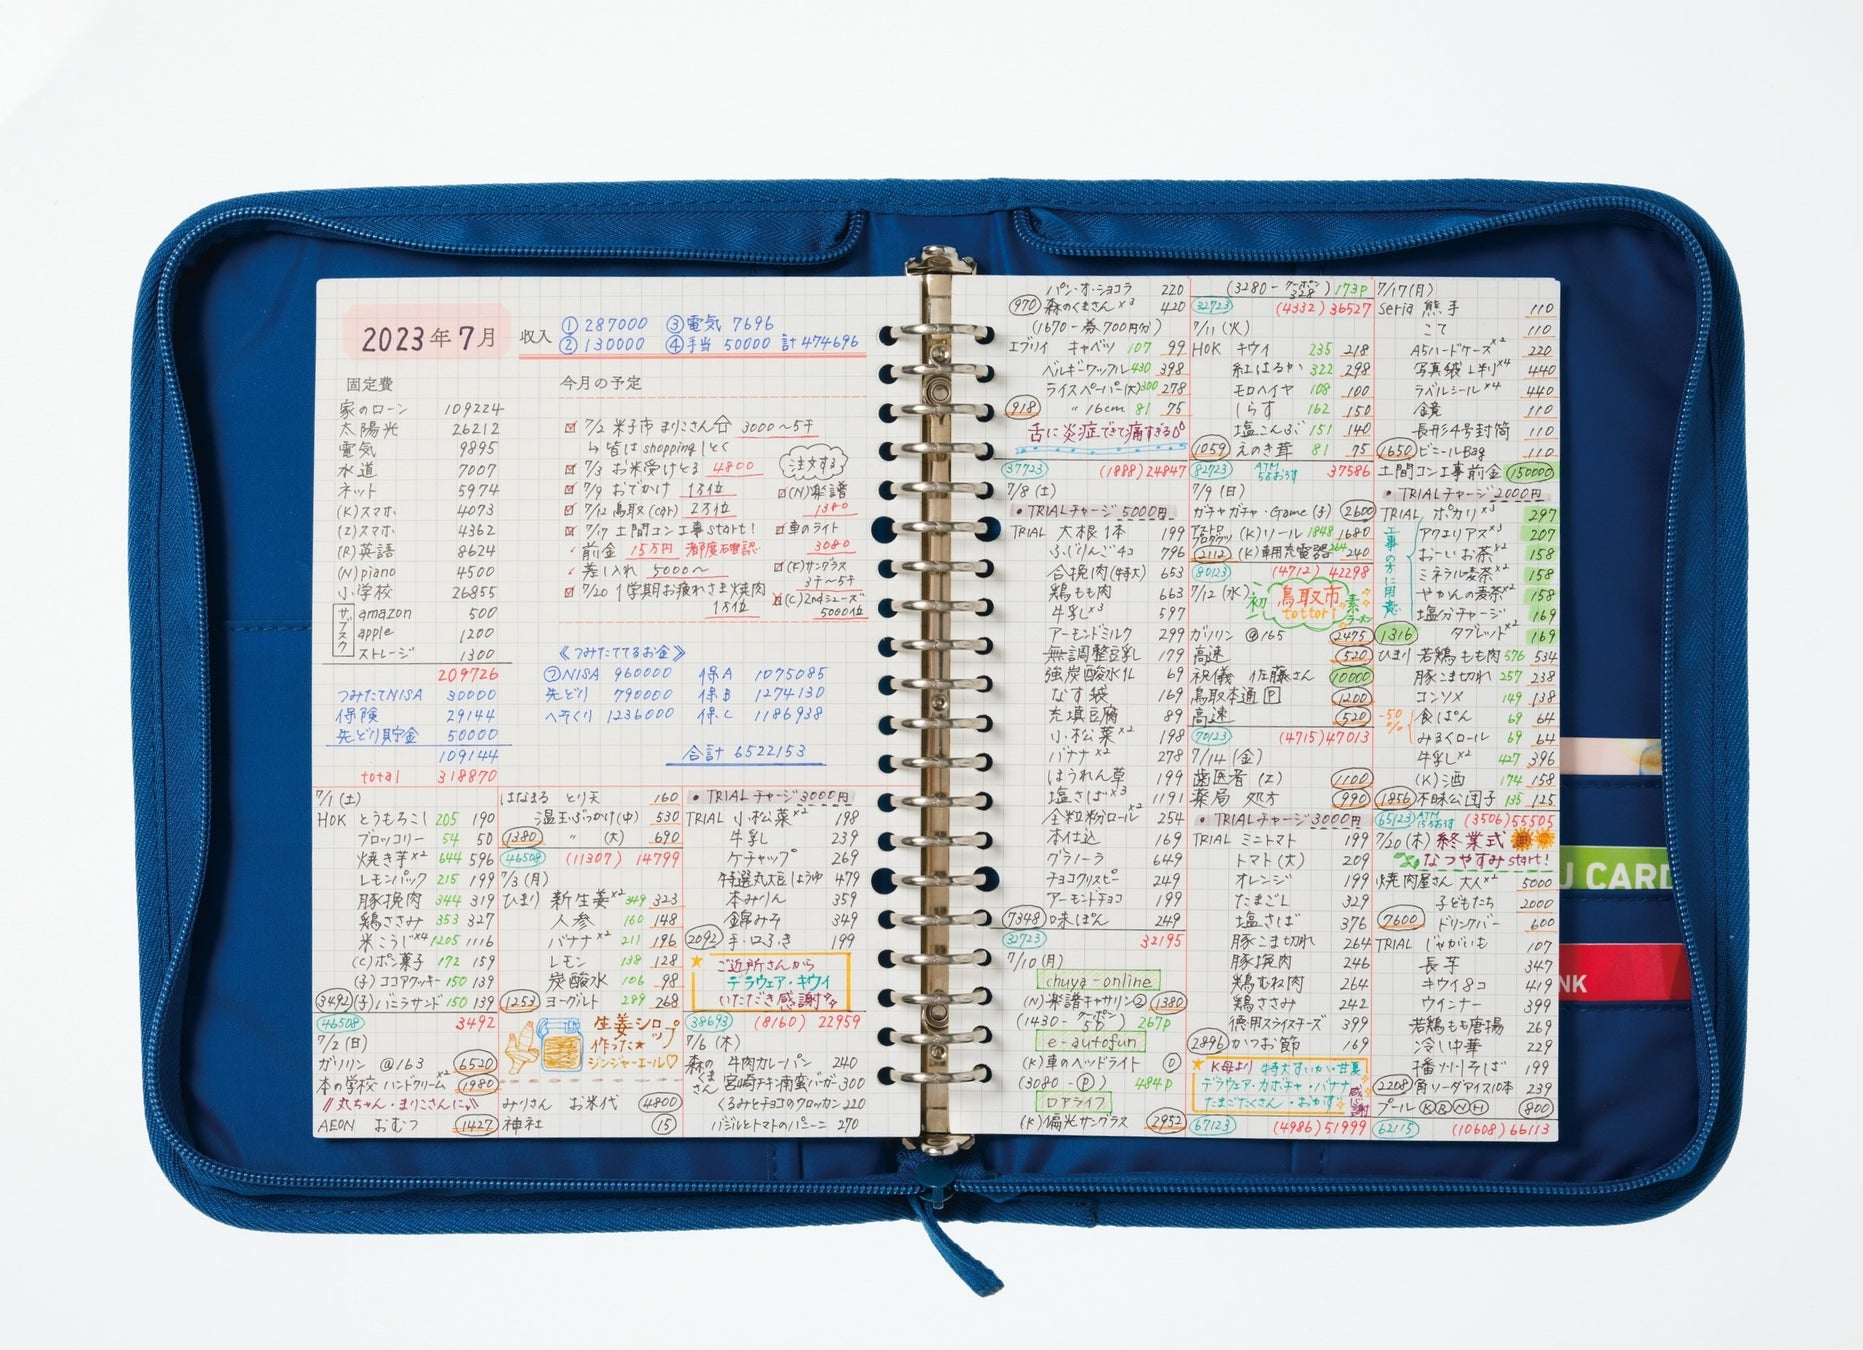 2023年7月
収入 ① 287000 ③電気 7696
② 130000 ④手当 50000 計 474696
固定費
家のローン 109224
太陽光 26212
電気 9895
水道 7007
ネット 5974
(K)スマホ 4073
(Z)スマホ 4362
(R)英語 8624
(N)piano 4500
小学校 26855
サブスク
amazon 500
apple 1200
ストレージ 1300
209726
つみたてNISA 30000
保険 29144
先どり貯金 50000
109144
total 318870
今月の予定
7/2 米子市 まりこさん 3000〜5千
↳ 皆はshoppingしとく
7/3 お米受けとる 4800
7/9 おでかけ 1万位
7/12 鳥取(car) 2万位
7/17 土間コン工事start!
前金 15万円 都度確認
差し入れ 5000〜
7/20 1学期お疲れさま焼肉
1万位
注文する
(N)楽譜
1380
車のライト
3080
(K)サングラス
3千〜5千
(C)2ndシューズ
5000位
《つみたててるお金》
NISA 960000 保A 1075085
先どり 790000 保B 1274130
へそくり 1236000 保C 1186938
合計 6522153
7/1(土)
HOK とうもろこし 205 190
ブロッコリー 54 50
焼き芋×2 644 596
レモンパック 215 199
豚挽肉 344 319
鶏ささみ 353 327
米こうじ×4 1205 1116
(C)ポン菓子 172 159
(子)ココアクッキー 150 139
3492 (子)バニラサンド 150 139
46508 3492
7/2(日)
ガソリン @163 6520
本の学校 ハンドクリーム×2 1980
〃丸ちゃん・まりこさんに〃
AEON おむつ 1427
はなまる とり天 160
温玉ぶっかけ(中) 530
1380 〃 (大) 690
46508 (11307) 14799
7/3(月)
ひまり 新生姜×2 349 323
人参 160 148
バナナ×2 211 196
レモン 138 128
炭酸水 106 98
1253 ヨーグルト 289 268
生姜シロップ
作った★
ジンジャーエール♡
みりさん お米代 4800
神社 15
• TRIALチャージ3000円
TRIAL 小松菜×2 198
牛乳 239
ケチャップ 269
特選丸大豆しょうゆ 479
本みりん 359
錦みそ 349
2092 手・口ふき 199
★ ご近所さんから
デラウェア・キウイ
いただき感謝
38693 (8160) 22959
7/6(木)
森のくまさん 牛肉カレーパン 240
宮崎チキン南蛮バーガー 300
くるみとチョコのクロッカン 220
バジルとトマトのパニーニ 270
パン・オ・ショコラ 220
970 森のくまさん×3 420
(1670-券700円分)
エブリイ キャベツ 107 99
ベルギーワッフル 430 398
ライスペーパー(大) 300 278
918 〃 16cm 81 75
舌に炎症できて痛すぎる
37723 (1888) 24847
7/8(土)
• TRIALチャージ 5000円
TRIAL 大根1本 199
ふじりんご4コ 796
合挽肉(特大) 653
鶏もも肉 663
牛乳×3 597
アーモンドミルク 299
無調整豆乳 179
強炭酸水1L 69
なす袋 169
充填豆腐 89
小松菜×2 198
バナナ×2 278
ほうれん草 199
塩さば×3 1191
全粒粉ロール×2 254
本仕込 169
グラノーラ 649
チョコクリスピー 249
アーモンドチョコ 199
7348 味ぽん 249
32723 32195
7/10(月)
chuya-online
(N)楽譜キャサリン② 1380
(1430-クーポン50) 267P
e-autofun
(K)車のヘッドライト 0
(3080-Ⓟ) 484P
ロアライフ
(K)偏光サングラス 2952
(3280-クーポン328) 173P
32723 (4332) 36527
7/11(火)
HOK キウイ 235 218
紅はるか 322 298
モロヘイヤ 108 100
しらす 162 150
塩こんぶ 151 140
1059 えのき茸 81 75
82723 ATM 5万おろす 37586
7/9(日)
ガチャガチャ・Game(子) 2600
アストロプロダクツ (K)リール 1848 1680
2112 (K)車用充電器 264 240
80123 (4712) 42298
7/12(水) 初 鳥取市 tottori 素ラーメン
ガソリン @165 2475
高速 520
祝儀 佐藤さん 10000
鳥取本通P 1200
高速 520
70123 (4715) 47013
7/14(金)
歯医者(Z) 1100
薬局 処方 990
• TRIALチャージ3000円
TRIAL ミニトマト 199
トマト(大) 209
オレンジ 199
たまごL 329
塩さば 376
豚こま切れ 264
豚挽肉 246
鶏むね肉 264
鶏ささみ 242
徳用スライスチーズ 399
2896 かつお節 169
★ K母より 特大すいか・甘夏
デラウェア・カボチャ・バナナ
たまごたくさん・おかず 感謝
67123 (4986) 51999
7/17(月)
Seria 熊手 110
こて 110
A5ハードケース×2 220
写真袋L判×4 440
ラベルシール×4 440
鏡 110
長形4号封筒 110
1650 ビニールBag 110
土間コン工事前金 150000
• TRIALチャージ2000円
TRIAL ポカリ×3 297
アクエリアス×3 207
おーいお茶×2 158
ミネラル麦茶×2 158
やかんの麦茶×2 158
塩分チャージ 169
1316 タブレット×2 169
工事の方に用意
ひまり 若鶏もも肉 576 534
豚こま切れ 257 238
コンソメ 149 138
-50% 食ぱん 69 64
みるくロール 69 64
牛乳×2 427 396
(K)酒 174 158
1856 不昧公団子 135 125
65123 ATM 15万おろす (3506) 55505
7/20(木) 終業式
なつやすみstart!
焼肉屋さん 大人×2 5000
子どもたち 2000
7600 ドリンクバー 600
TRIAL じゃがいも 107
長芋 347
キウイ8コ 419
ウインナー 399
若鶏もも唐揚 269
冷し中華 229
播州そば 199
2208 角ソーダアイス10本 239
プール ⓀⓇⓃⒽ 800
62115 (10608) 66113
U CARD
NK